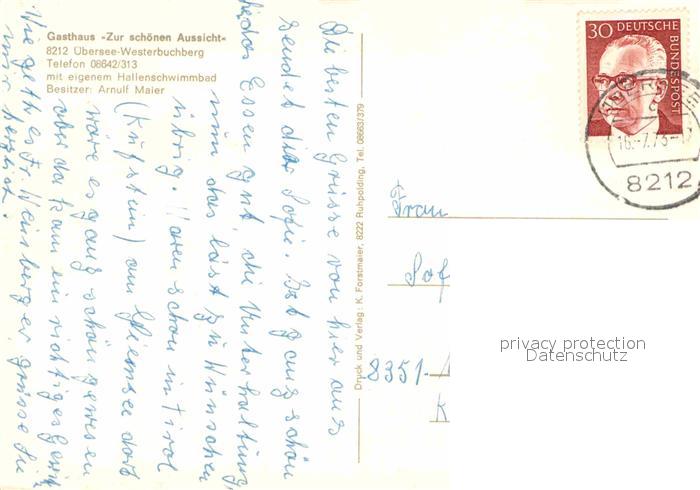 Gasthaus »Zur schönen Aussicht«
8212 Übersee-Westerbuchberg
Telefon 08642/313
mit eigenem Hallenschwimmbad
Besitzer: Arnulf Maier
Die besten Grüsse von hier aus
sendet dir Sofie. Ist ganz schön
hier das Essen gut, die Unterhaltung
nun das läst zu Wünschen
übrig. Waren schon in Tirol
(Kufstein) am Chiemsee dort
wäre es ganz schön gewesen
aber da kam ein richtiges
Wie geth es Fr. Weinsberger, grüsse Sie
mir herzlich.
Druck und Verlag: K. Forstmaier, 8222 Ruhpolding, Tel. 08663/379
30 DEUTSCHE BUNDESPOST
16.-7.73-
8212
Frau
Sof
8351-
K
privacy protection
Datenschutz